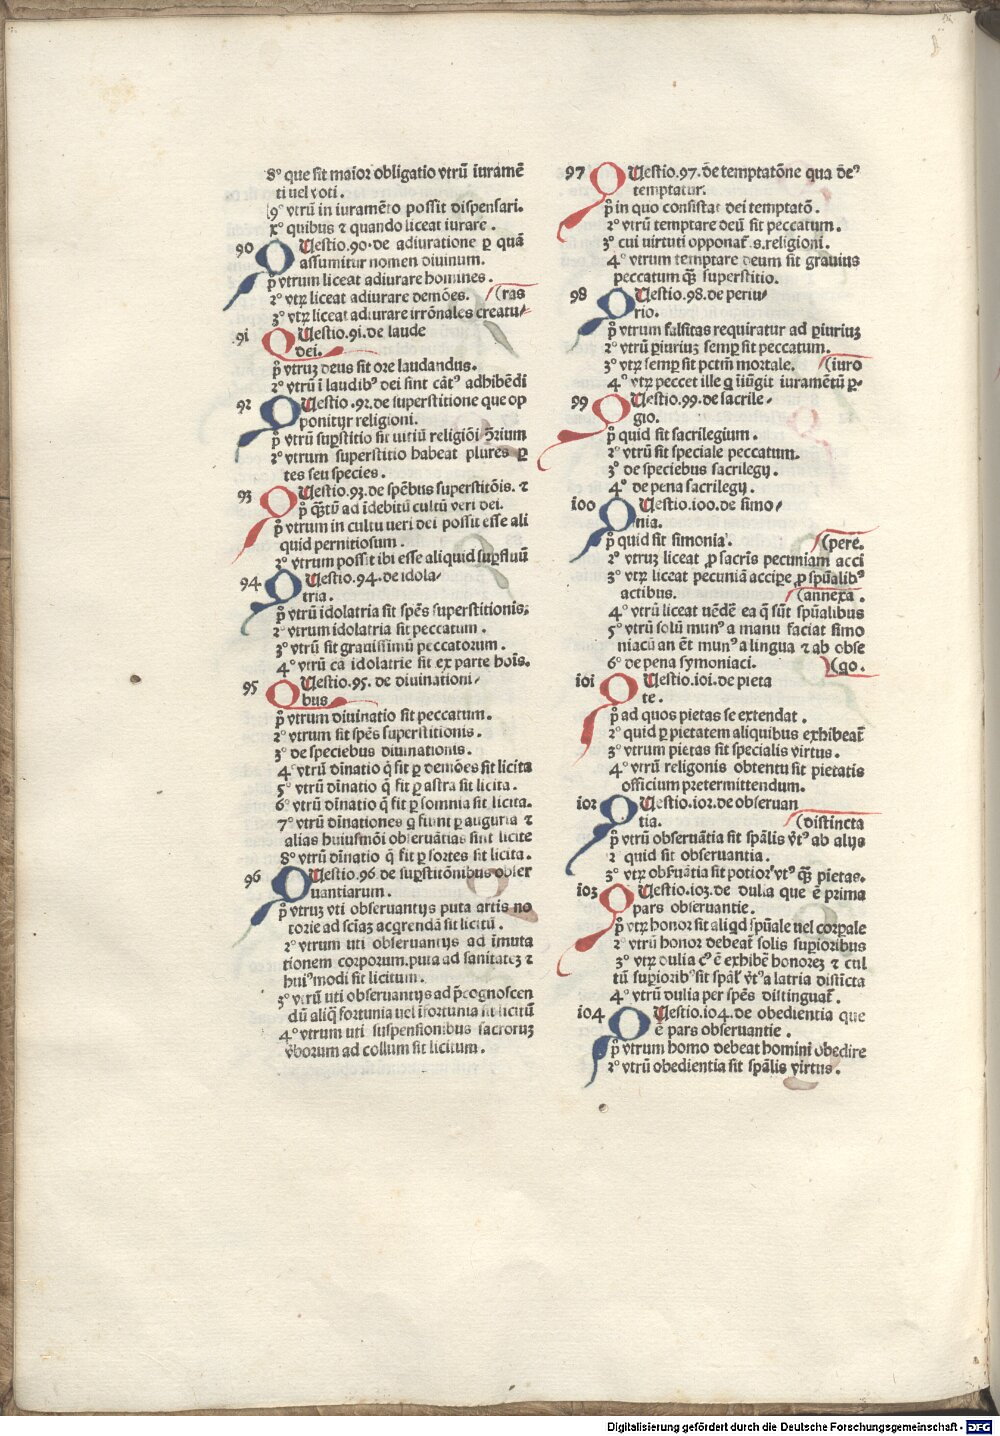 8° que sit maior obligatio vtrū iuramē
ti uel voti.
9° vtrū in iuramēto possit dispensari.
x° quibus ⁊ quando liceat iurare.
90 QUestio.90.de adiuratione ꝑ quā
assumitur nomen diuinum.
p̄ vtrum liceat adiurare homines.
2° vtꝝ liceat adiurare demōes. (ras
3° vtꝝ liceat adiurare irrōnales creatu/
91 QUestio.91.de laude
dei.
p̄ vtruꝫ deus sit ore laudandus.
2° vtrū ī laudibꝰ dei sint cātꝰ adhibēdi
92 QUestio.92.de superstitione que op
ponitur religioni.
p̄ vtrū suꝑstitio sit uitiū religiōi ꝯ̄rium
2° vtrum superstitio habeat plures ꝑ
tes seu species.
93 QUestio.93.de spēbus superstitōis. ⁊
p̄ qꝫ̄tū ad īdebitū cultū veri dei.
p̄ vtrum in cultu ueri dei possit esse ali
quid pernitiosum.
2° vtrum possit ibi esse aliquid suꝑfluū
94 QUestio.94.de idola/
tria.
p̄ vtrū idolatria sit spēs superstitionis.
2° vtrum idolatria sit peccatum.
3° vtrū sit grauissimū peccatorum.
4° vtrū cā idolatrie sit ex parte hoīs.
95 QUestio.95. de diuinationi/
bus
p̄ vtrum diuinatio sit peccatum.
2° vtrum sit spēs superstitionis.
3° de speciebus diuinationis.
4° vtrū dīnatio q̄ fit ꝑ demōes sit licita
5° vtrū dīnatio q̄ fit ꝑ astra sit licita.
6° vtrū dīnatio q̄ fit ꝑ somnia sit licita.
7° vtrū dīnationes q̄ fiunt ꝑ auguria ⁊
alias huiusmōi obseruātias sint licite
8° vtrū dīnatio q̄ fit ꝑ sortes sit licita.
96 QUestio.96 de suꝑstitōnibus obser
uantiarum.
p̄ vtruꝫ vti obseruantijs puta artis no
torie ad sciaꝫ acqrendā sit licitū.
2° vtrum uti obseruantijs ad īmuta
tionem corporum.puta ad sanitateꝫ ⁊
huiꝰmodi sit licitum.
3° vtrū uti obseruantijs ad p̄cognoscen
dū aliq̄ fortunia uel īfortunia sit licitū
4° vtrum uti suspensionibus sacroruꝫ
v̄borum ad collum sit licitum.
97 QUestio.97.de temptatōne qua deꝰ
temptatur.
p̄ in quo consistat dei temptatō.
2° vtrū temptare deū sit peccatum.
3° cui uirtuti opponat᷑.s.religioni.
4° vtrum temptare deum sit grauius
peccatum qꝫ̄ superstitio.
98 QUestio.98.de periu/
rio.
p̄ vtrum falsitas requiratur ad ꝑiuriuꝫ
2° vtrū ꝑiuriuꝫ semꝑ sit peccatum.
3° vtꝝ semꝑ sit pctm̄ mortale. (iuro
4° vtꝝ peccet ille q̄ īiūgit iuramētū ꝑ-
99 QUestio.99.de sacrile-
gio.
p̄ quid sit sacrilegium.
2° vtrū sit speciale peccatum.
3° de speciebus sacrilegij.
4° de pena sacrilegij.
100 QUestio.100.de simo/
nia.
p̄ quid sit simonia. (pere.
2° vtruꝫ liceat ꝓ sacris pecuniam acci
3° vtꝝ liceat pecuniā acciꝑe ꝓ spūalibꝰ
actibus. (annexa.
4° vtrū liceat uēdē ea q̄ sūt spūalibus
5° vtrū solū munꝰ a manu faciat simo
niacū an ēt munꝰ a lingua ⁊ ab obse
6° de pena symoniaci. (qo.
101 QUestio.101.de pieta
te.
p̄ ad quos pietas se extendat.
2° quid ꝑ pietatem aliquibus exhibeat᷑
3° vtrum pietas sit specialis virtus.
4° vtrū religonis obtentu sit pietatis
officium pretermittendum.
102 QUestio.102.de obseruan
tia. (distincta
p̄ vtrū obseruātia sit spālis v̄tꝰ ab alijs
2 quid sit obseruantia.
3° vtꝝ obſuātia sit potior v̄tꝰ qꝫ̄ pietas.
103 QUestio.103.de dulia que ē prima
pars obseruantie.
p̄ vtꝝ honor sit aliqd spūale uel corꝑale
2° vtrū honor debeat᷑ solis suꝑioribus
3° vtꝝ dulia cꝰ ē exhibē honoreꝫ ⁊ cul
tū suꝑioribꝰ sit spāl' v̄tꝰ a latria distīcta
4° vtrū dulia per spēs distinguat᷑.
104 QUestio.104.de obedientia que
ē pars obseruantie.
p̄ vtrum homo debeat homini obedire
2° vtrū obedientia sit spālis virtus.
Digitalisierung gefördert durch die Deutsche Forschungsgemeinschaft - DFG